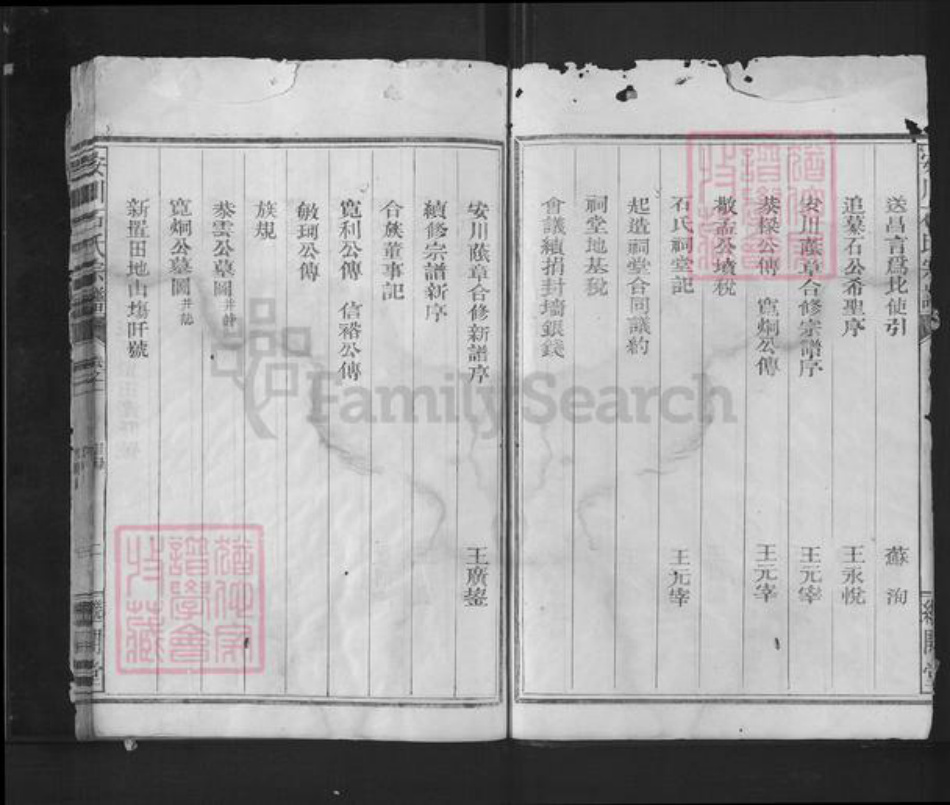 送昌言爲北使引 蘇洵
追墓石公希聖序 王永悅
安川蔭章合修宗譜序 王元宰
恭椂公傳 寬炯公傳 王元宰
敬孟公墳稅
石氏祠堂記 王元宰
起造祠堂合同議約
祠堂地基稅
會議續捐封墻銀錢
安川蔭章合修新譜序 王廣鋆
續修宗譜新序
合族董事記
寬利公傳 信褣公傳
敏珂公傳
族規
恭雲公墓圖
寬炯公墓圖
新置田地山塲阡號
安川石氏宗譜
FamilySearch